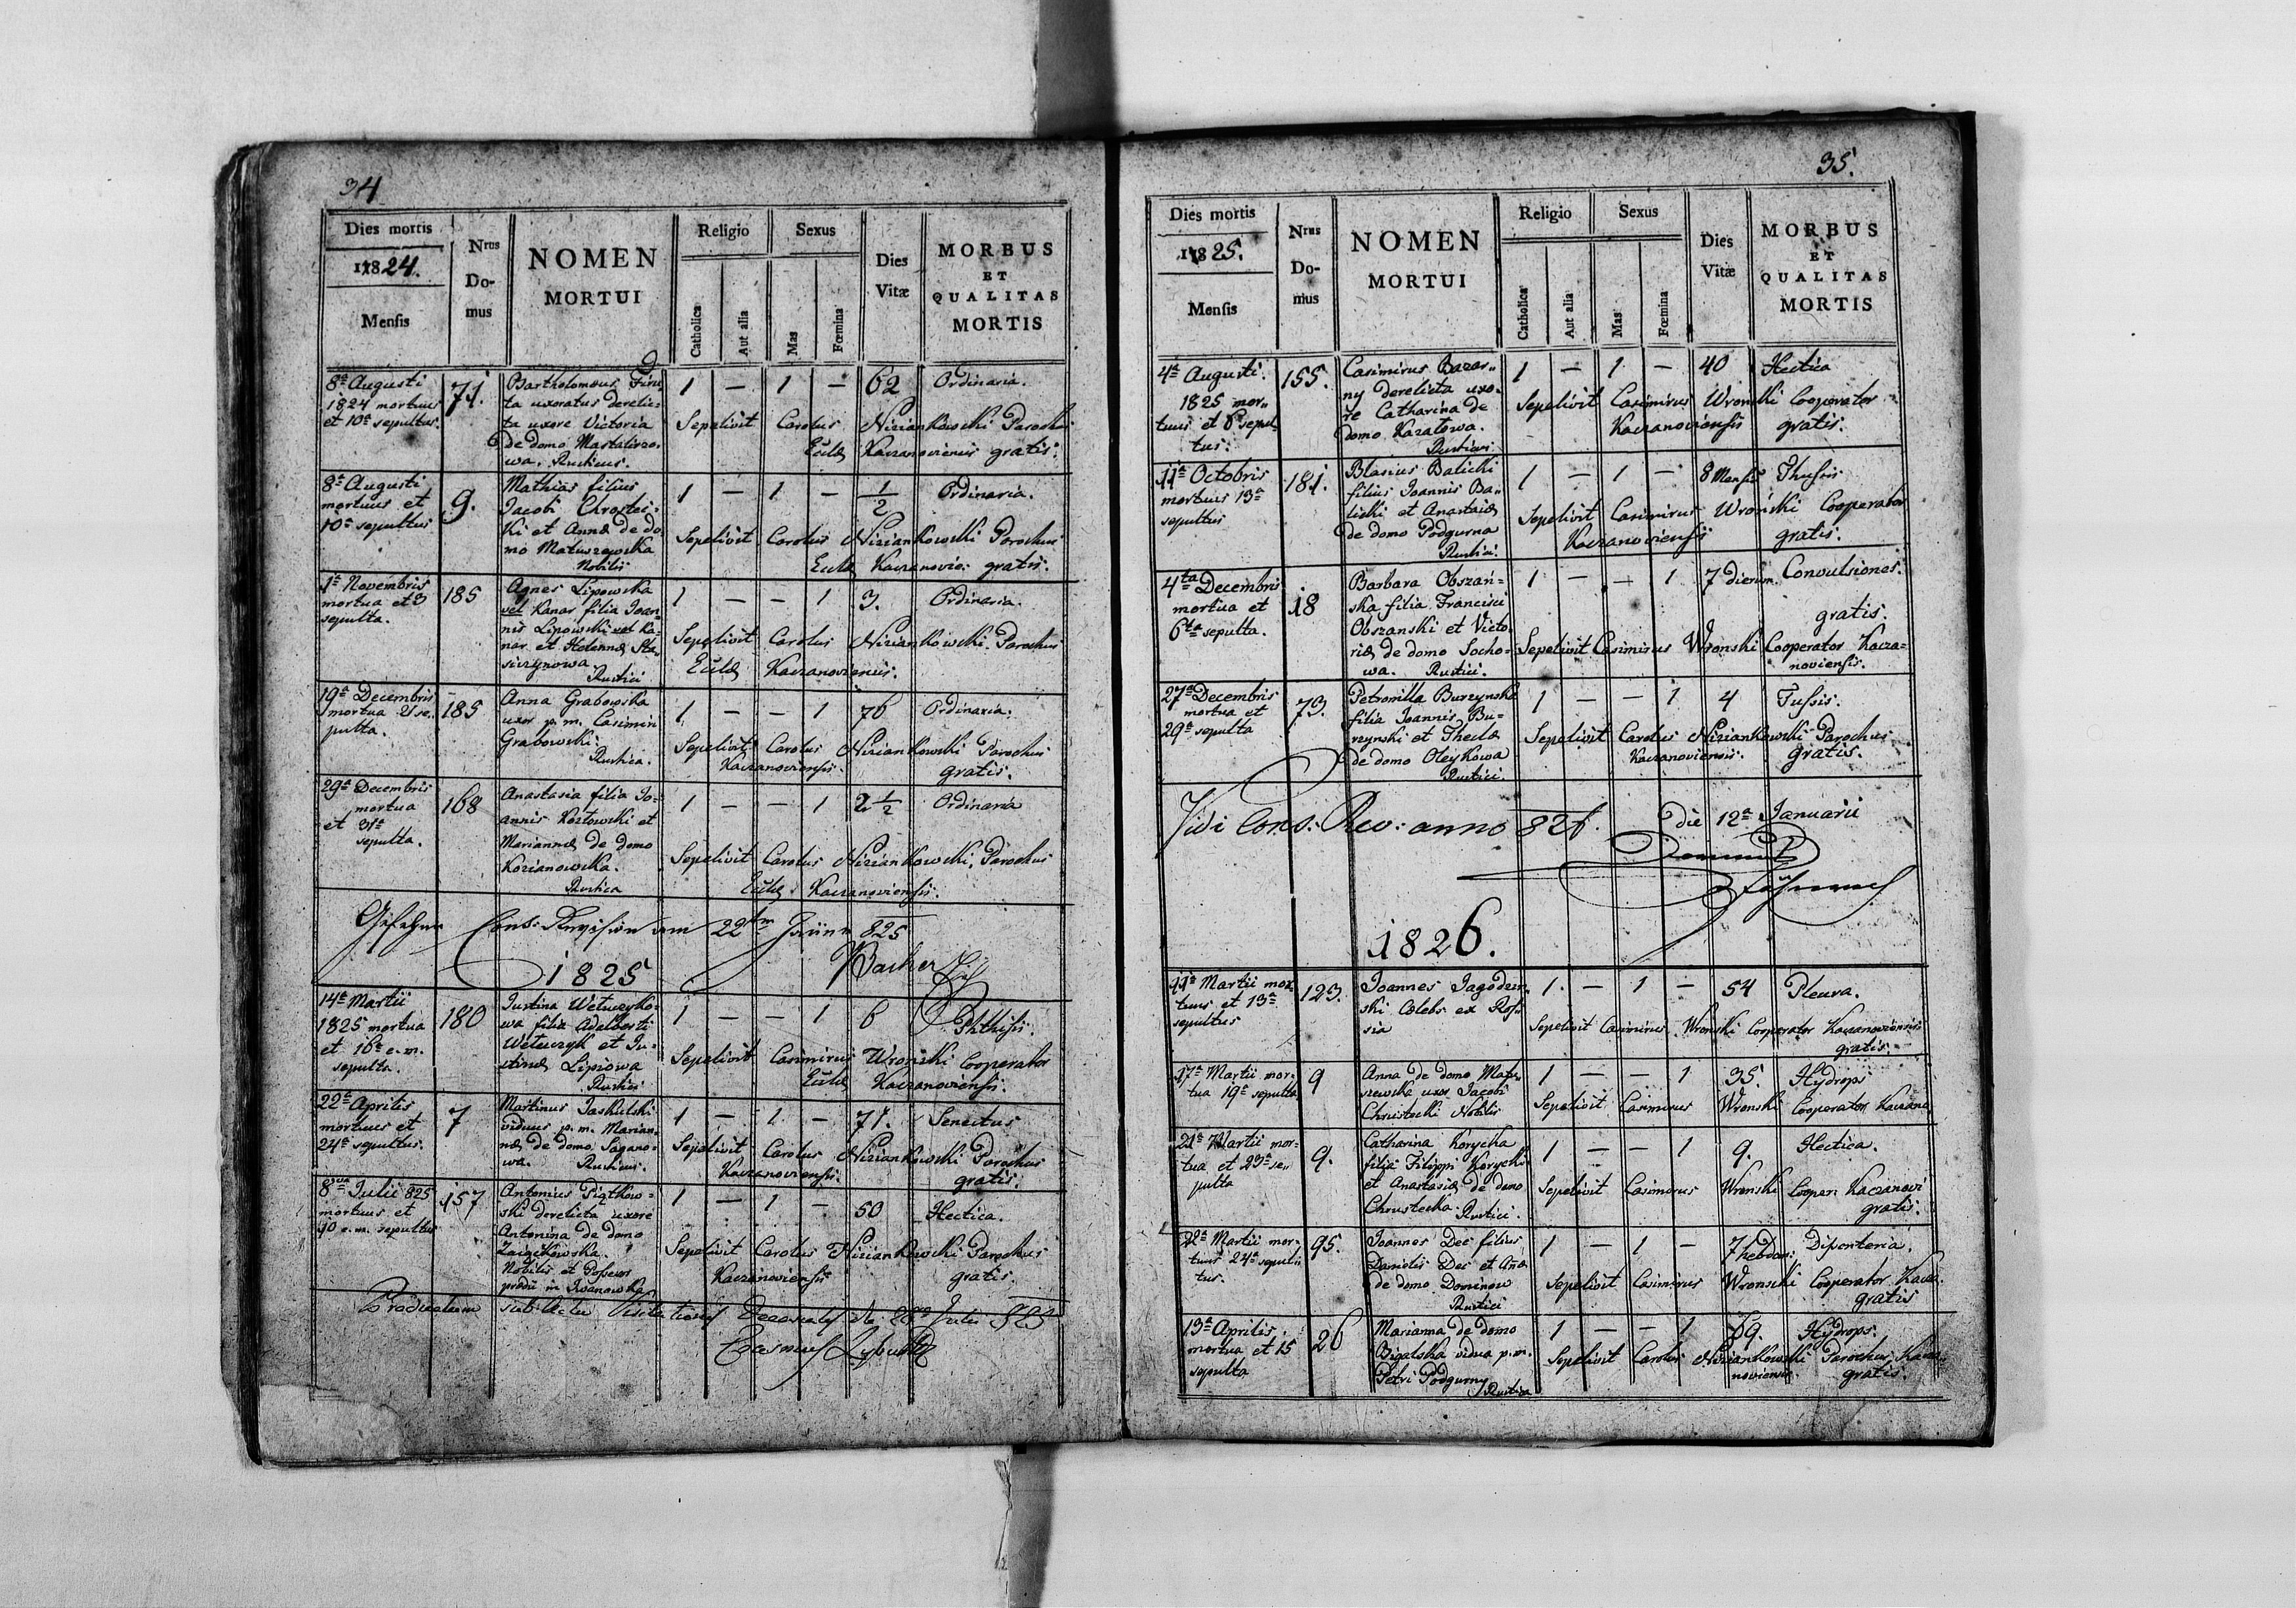 34
Dies mortis
1824.
Mensis
Nrus Domus
NOMEN
MORTUI
Religio
Catholica
Aut alia
Sexus
Mas
Fœmina
Dies
Vitæ
MORBUS
ET
QUALITAS
MORTIS
8a Augusti
1824 mortuus
et 10a sepultus.
71.
Bartholomæus
ta uxoratus derelic=
ta uxore Victoria
de domo
wa. Rusticus.
1 — 1 — 62 Ordinaria.
Sepelivit Carolus Niziankowski Parochus
Eccl. Kaczanoviensis gratis.
8a Augusti
mortuus et
10a sepultus
9.
Mathias filius
Jacobi
ki et Annæ de do=
mo Matuszewska
Nobilis
1 — 1 — 1/2 Ordinaria.
Sepelivit Carolus Niziankowski Parochus
Eccl. Kaczanovien: gratis.
1a Novembris
mortua et 3
sepulta.
185
Agnes Lipowska
vel Kanar filia Joan=
nis Lipowski vel Ka=
nar et Helenæ Sta=
siczynowa.
Rustici
1 — — 1 3. Ordinaria.
Sepelivit Carolus Niziankowski Parochus
Eccl. Kaczanoviensis.
19a Decembris
mortua 21 se=
pulta.
185
Anna Grabowska
uxor p. m. Casimiri
Grabowski.
Rustica.
1 — — 1 76 Ordinaria.
Sepelivit Carolus Niziankowski Parochus
Kaczanoviensis.
gratis.
29a Decembris
mortua
et 31a
sepulta.
168
Anastasia filia Jo=
annis Kozłowski et
Mariannæ de domo
Kozianowska.
Rustica
1 — — 1 2 1/2 Ordinaria
Sepelivit Carolus Niziankowski Parochus
Eccl. Kaczanoviensis.
825
1825
14a Martii
1825 mortua
et 16a e. m.
sepulta.
180
Justina
wa filia Adalberti
et Ju=
stinæ Lipiowa
Rustici
1 — — 1 6 Phthisis.
Sepelivit Casimirus Wronski Cooperator
Eccl. Kaczanoviensis.
22a Aprilis
mortuus et
24a sepultus.
7
Martinus Jaskulski
viduus p. m. Marian=
næ de domo Sagano=
wa. Rusticus.
1 — 1 — 71. Senectus
Sepelivit Carolus Niziankowski Parochus
Kaczanoviensis.
gratis.
8va Julii 825
mortuus et
10 e. m. sepultus
157
Antonius Piątkow=
ski derelicta uxore
Antonina de domo
Nobilis et Possessor
prædii in Iwanowka
1 — 1 — 50 Hectica.
Sepelivit Carolus Niziankowski Parochus
Kaczanoviensis
gratis.
Productum sub Actu Visitationis Decanalis
35.
Dies mortis
1825.
Mensis
Nrus Domus
NOMEN
MORTUI
Religio
Catholica
Aut alia
Sexus
Mas
Fœmina
Dies
Vitæ
MORBUS
ET
QUALITAS
MORTIS
4a Augusti.
1825 mor=
tuus et 6 sepul=
tus.
155.
Casimirus Bazar=
ny derelicta uxo=
re Catharina de
domo Kazatowa.
Rustici
1 — 1 — 40 Hectica
Sepelivit Casimirus Wronski Cooperator
Kaczanoviensis gratis.
11a Octobris
mortuus 13a
sepultus
181.
Blasius Balicki
filius Joannis Ba=
licki et Anastasiæ
de domo Podgurna
Rustici.
1 — 1 — 8 Mensis Thussis
Sepelivit Casimirus Wronski Cooperator
Kaczanoviensis gratis.
4ta Decembris
mortua et
6ta sepulta.
18
Barbara Obszań=
ska filia Francisci
Obszanski et Victo=
riæ de domo Socho=
wa. Rustici.
1 — — 1 7 dierum. Convulsiones.
gratis.
Sepelivit Casimirus Wronski Cooperator Kacza=
noviensis.
27a Decembris
mortua et
29a sepulta
73.
Petronilla Burzynska
filia Joannis Bu=
rzynski et Theclæ
de domo Oleykowa
Rustici.
1 — — 1 4 Tussis.
Sepelivit Carolus Niziankowski Parochus
Kaczanoviensis. gratis.
Vidi Cons: Rev: anno 826. die 12a Januarii
1826.
11a Martii mor=
tuus et 13a
sepultus
123.
Joannes
ski Cælebs ex Ros=
sia
1. — 1 — 54 Pleura.
Sepelivit Casimirus Wronski Cooperator Kaczanoviensis
gratis.
17a Martii mor=
tua 19a sepulta
9
Anna de domo Matu=
szewska uxor Jacobi
Chrustecki Nobilis
1 — — 1 35. Hydrops
Sepelivit Casimirus Wronski Cooperator Kaczano
21a Martii mor=
tua et 23a se=
pulta
9.
Catharina Korycka
filia Filippi Korycki
et Anastasiæ de domo
Chrustecka. Rustici.
1 — — 1 9. Hectica.
Sepelivit Casimirus Wronski Cooper: Kaczanovi
gratis.
22a Martii mor=
tuus 24a sepul=
tus.
95.
Joannes Dec filius
Danielis Dec et Annæ
de domo Dominow
Rustici
1 — 1 — 7 hebdom: Disenteria.
Sepelivit Casimirus Wronski Cooperator Kacza.
gratis
13a Aprilis
mortua et 15
sepulta
26
Marianna de domo
Bigalska vidua p. m.
Petri Podgurny
Rustica
1 — — 1 79. Hydrops.
Sepelivit Carolus Niziankowski Parochus Kacza=
noviensis. gratis.